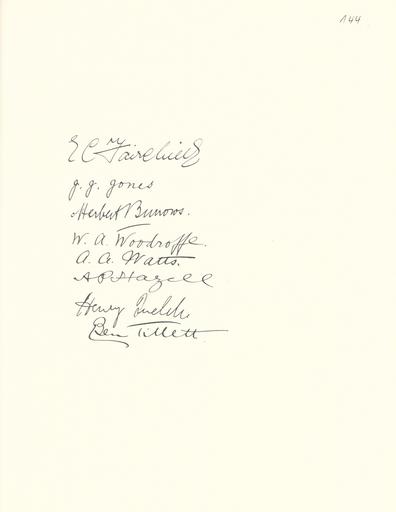 144
E C Fairchild
J. J. Jones
Herbert Burrows.
W. A. Woodroffe.
A. A. Watts.
A P Hazell
Henry Quelch
Ben Tillett